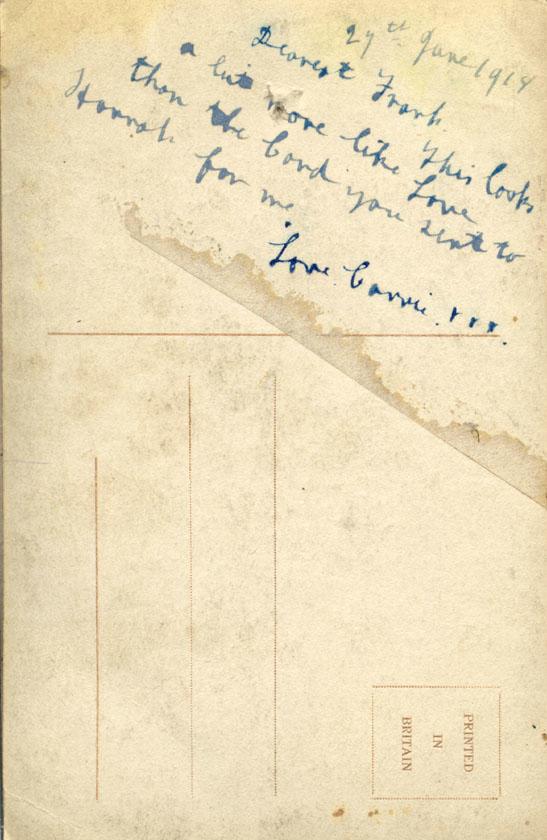 29th June 1918
Dearest Frank.
This looks
a bit more like Love
than the Card you sent to
Hannah for me.
Love Carrie. x x x.
PRINTED
IN
BRITAIN